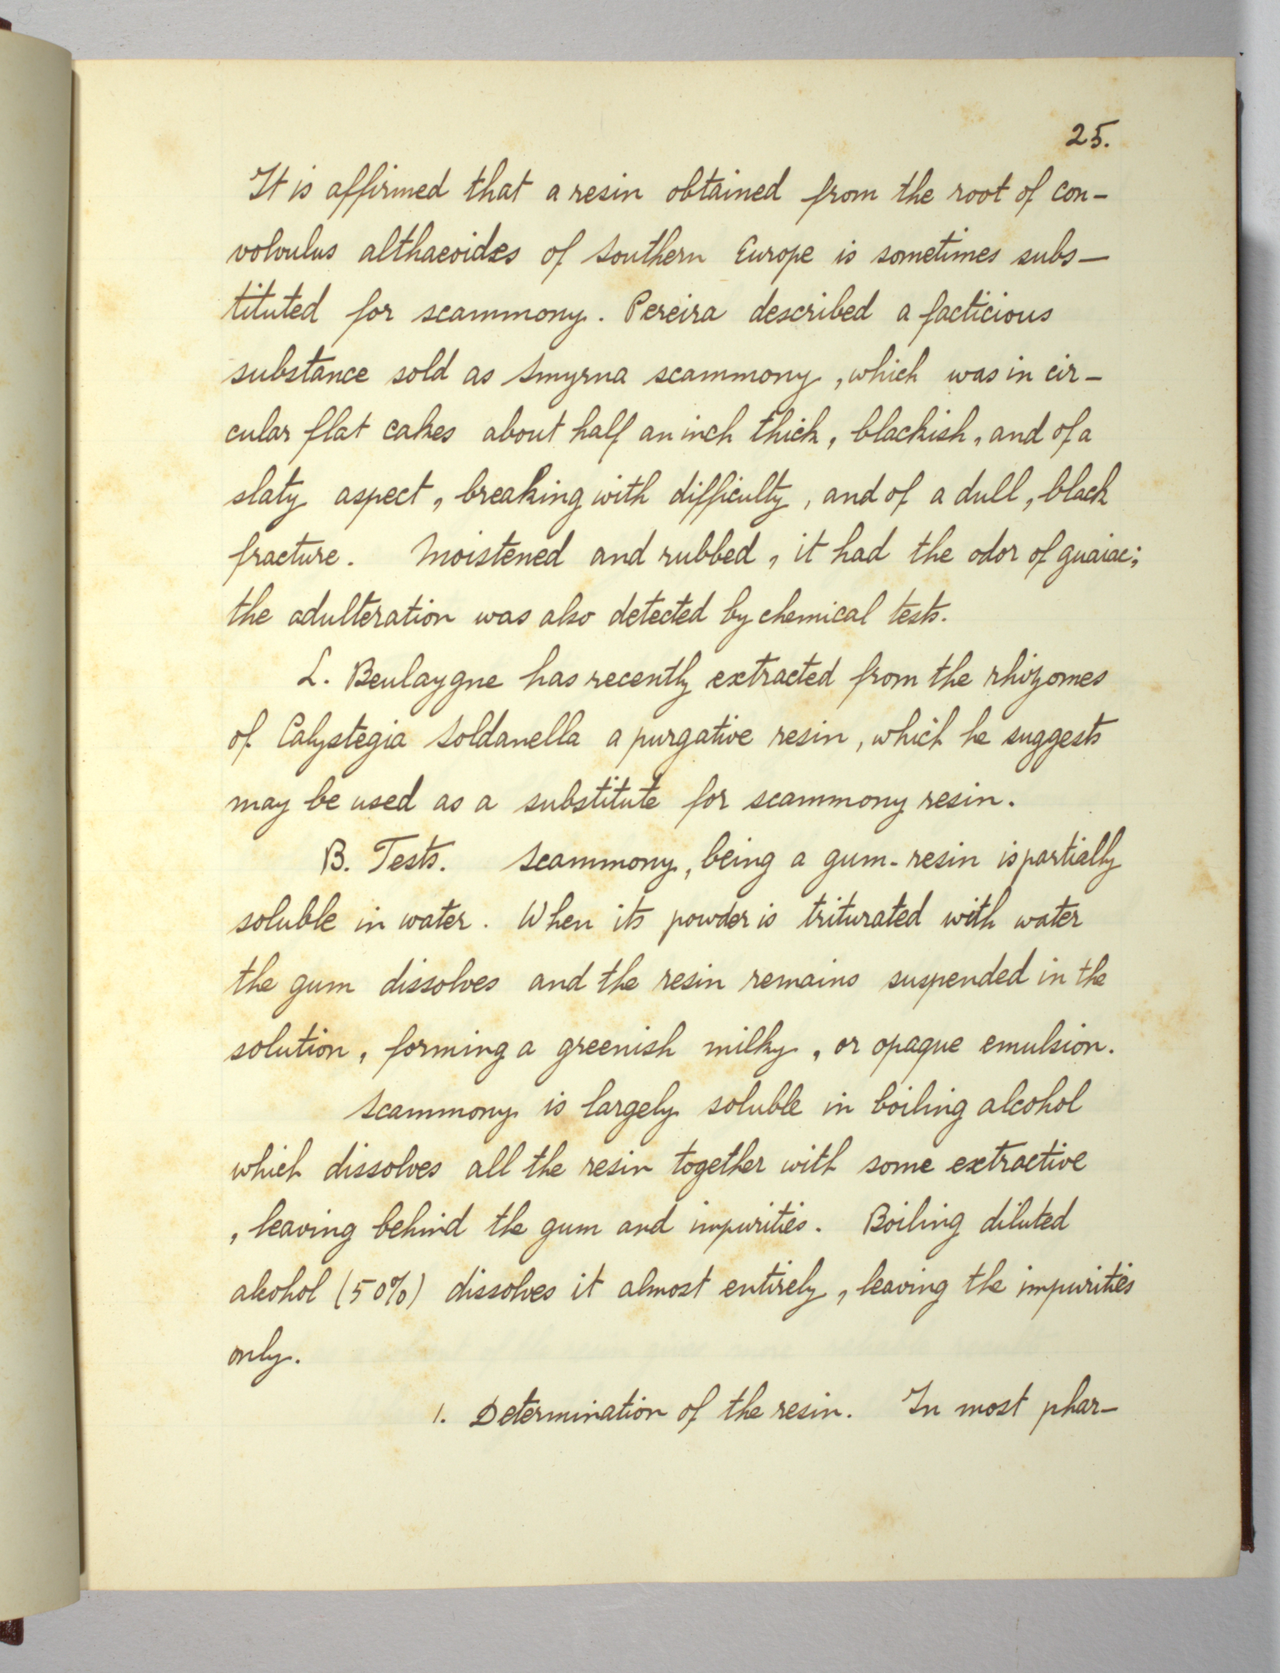 25.
It is affirmed that a resin obtained from the root of con-
volvulus althaeoides of Southern Europe is sometimes subs-
tituted for scammony. Pereira described a facticious
substance sold as Smyrna scammony, which was in cir-
cular flat cakes about half an inch thick, blackish, and of a
slaty aspect, breaking with difficulty, and of a dull, black
fracture. Moistened and rubbed, it had the odor of guaiac;
the adulteration was also detected by chemical tests.
L. Beulaygne has recently extracted from the rhizomes
of Calystegia Soldanella a purgative resin, which he suggests
may be used as a substitute for scammony resin.
B. Tests. Scammony, being a gum-resin is partially
soluble in water. When its powder is triturated with water
the gum dissolves and the resin remains suspended in the
solution, forming a greenish milky, or opaque emulsion.
Scammony is largely soluble in boiling alcohol
which dissolves all the resin together with some extractive
, leaving behind the gum and impurities. Boiling diluted
alcohol (50%) dissolves it almost entirely, leaving the impurities
only.
1. Determination of the resin. In most phar-